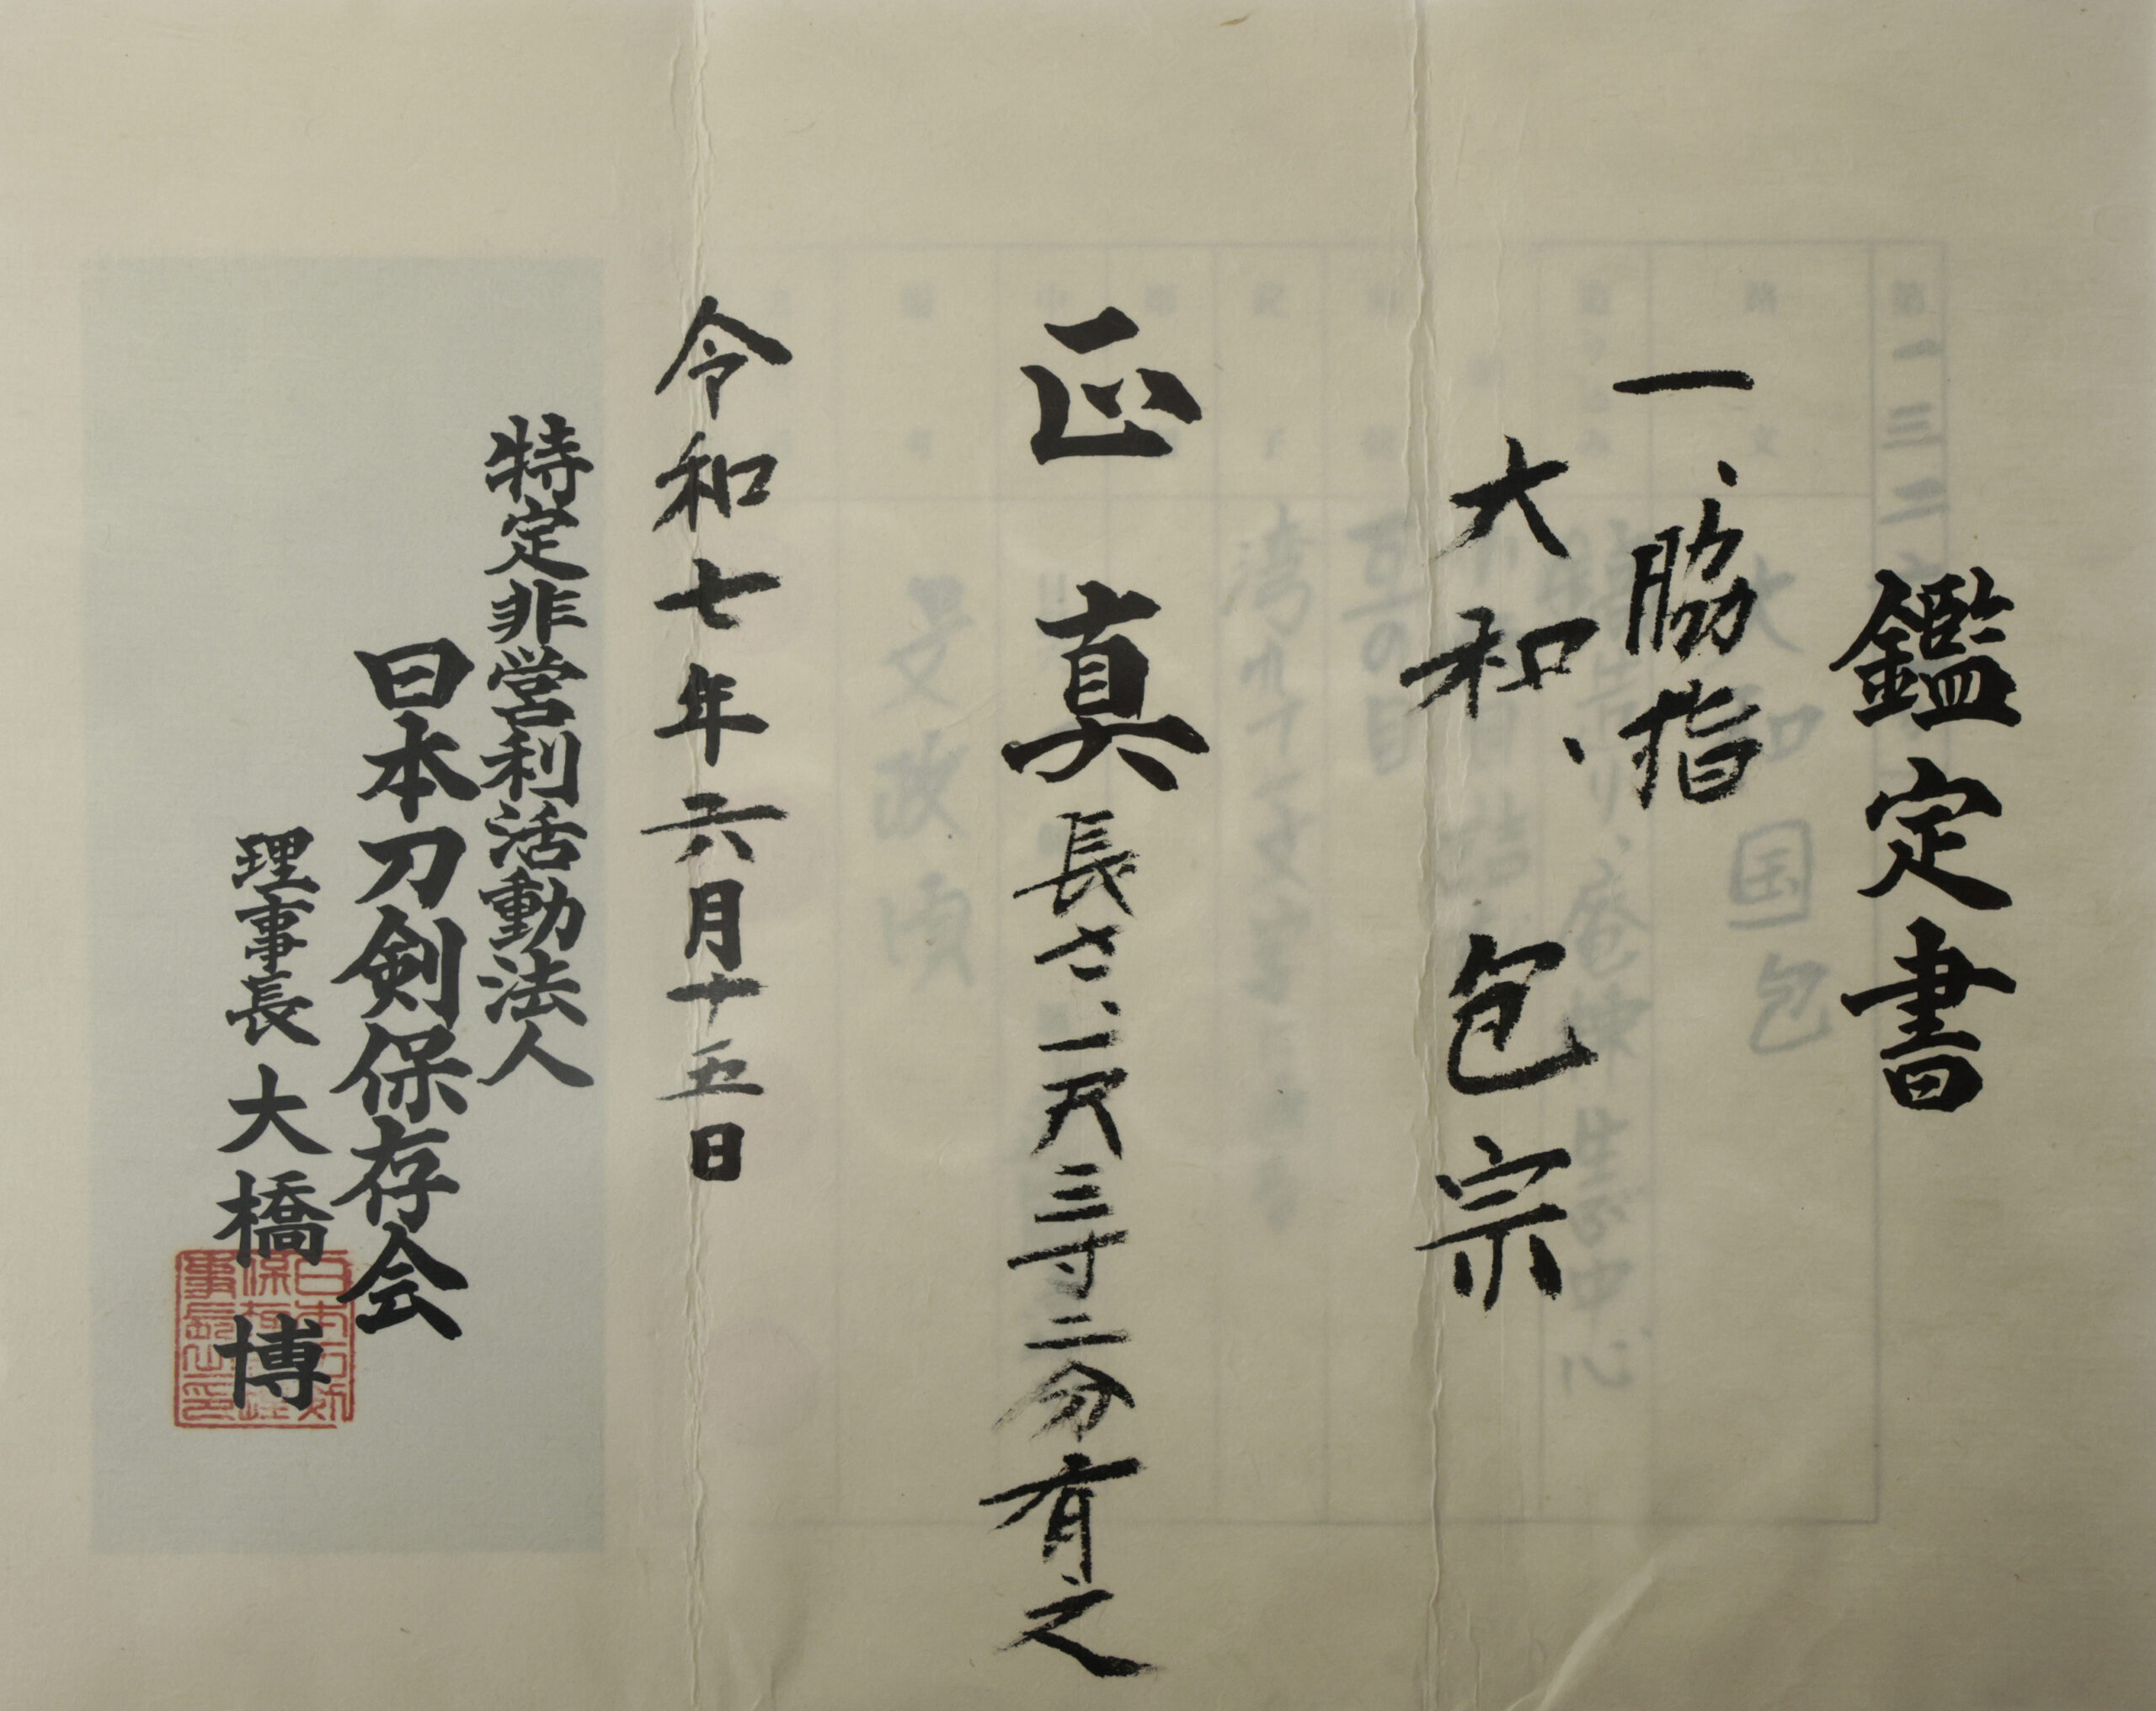 鑑定書
一、脇指
大和、包宗
正真 長さ、一尺三寸二分有之
令和七年六月十五日
特定非営利活動法人
日本刀剣保存会
理事長 大橋 博